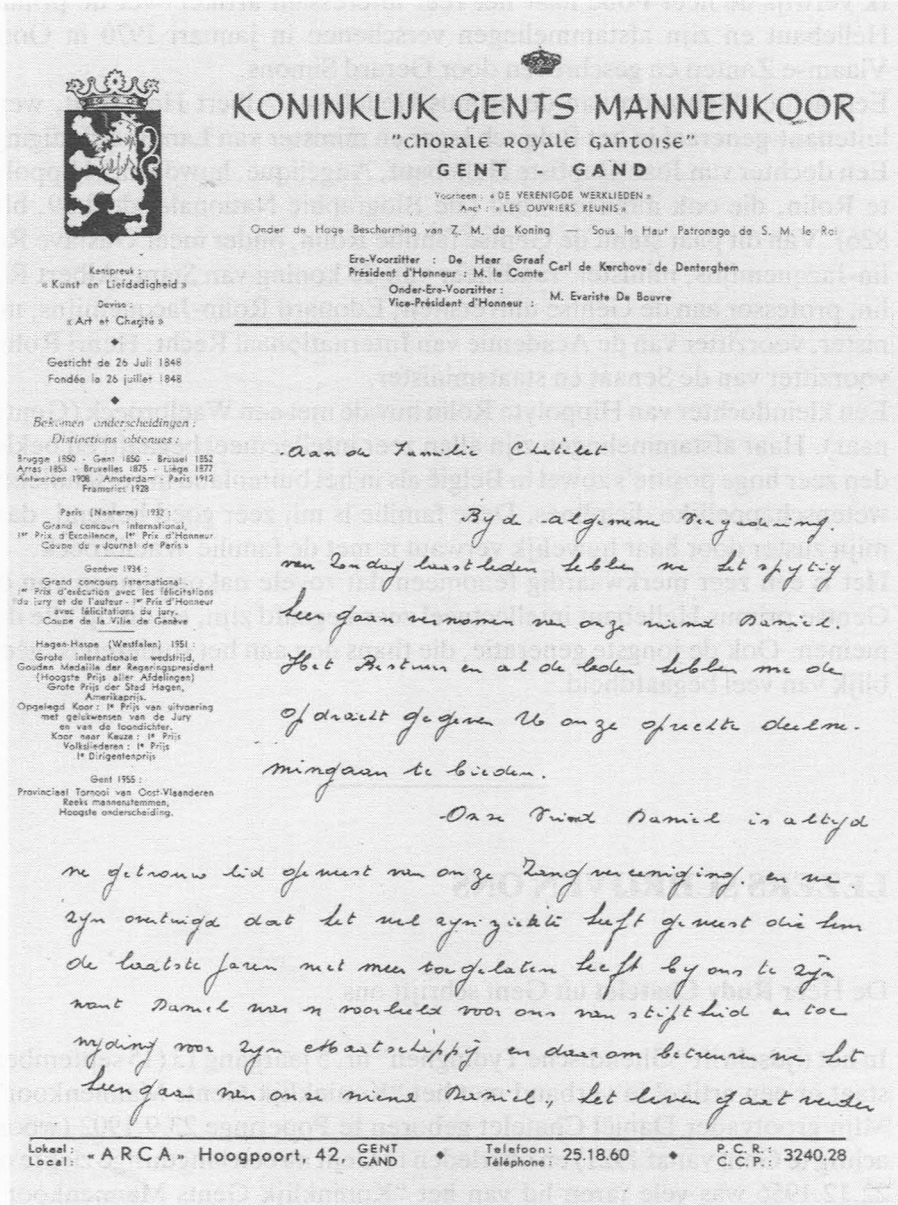 KONINKLIJK GENTS MANNENKOOR
"CHORALE ROYALE GANTOISE"
GENT - GAND
Voorheen : « DE VERENIGDE WERKLIEDEN »
Anct « LES OUVRIERS REUNIS »
Onder de Hoge Bescherming van Z. M. de Koning — Sous le Haut Patronage de S. M. le Roi
Ere-Voorzitter : De Heer Graaf
Président d'Honneur : M. le Comte
Carl de Kerchove de Denterghem
Onder-Ere-Voorzitter :
Vice-Président d'Honneur :
M. Evariste De Bouvre
Kenspreuk :
« Kunst en Liefdadigheid »
Devise :
« Art et Charité »
Gesticht de 26 Juli 1848
Fondée le 26 juillet 1848
Bekomen onderscheidingen :
Distinctions obtenues :
Brugge 1850 - Gent 1850 - Brussel 1852
Arras 1853 - Bruxelles 1875 - Liège 1877
Antwerpen 1908 - Amsterdam - Paris 1912
Frameries 1928
Paris (Nanterre) 1932 :
Grand concours international,
1er Prix d'Excellence, 1er Prix d'Honneur
Coupe du « Journal de Paris »
Genève 1934 :
Grand concours international.
1er Prix d'exécution avec les félicitations
du jury et de l'auteur - 1er Prix d'Honneur
avec félicitations du jury.
Coupe de la Ville de Genève
Hagen-Haspe (Westfalen) 1951
Grote internationale wedstrijd,
Gouden Medaille der Regeringspresident
(Hoogste Prijs aller Afdelingen)
Grote Prijs der Stad Hagen,
Amerikaprijs.
Opgelegd Koor : 1e Prijs van uitvoering
met gelukwensen van de Jury
en van de toondichter.
Koor naar Keuze : 1e Prijs
Volksliederen : 1e Prijs
1e Dirigentenprijs
Gent 1955 :
Provinciaal Tornooi van Oost-Vlaanderen
Reeks mannenstemmen,
Hoogste onderscheiding.
Aan de Familie Chatelet
By d'algemene Vergadering
van Zondag laastleden hebben we het spijtig
heengaan vernomen van onze vriend Daniel.
Het Bestuur en al de leden hebben me de
opdracht gegeven U onze oprechte deelne-
ming aan te bieden.
Onze Vriend Daniel is altyd
ne getrouw lid geweest van onze Zangvereeniging. en we
zyn overtuigd dat het wel zyn ziekte heeft geweest die hem
de laatste jaren niet meer toegelaten heeft by ons te zyn
want Daniel was 'n voorbeeld voor ons van stiptheid en toe
wyding voor zyn Maatschappij en daarom betreuren we het
heengaan van onze vriend Daniel, Het leven gaat verder
Lokaal :
Local :
« ARCA » Hoogpoort, 42, GENT
GAND
Telefoon :
Téléphone :
25.18.60
P.C.R. :
C.C.P. :
3240.28